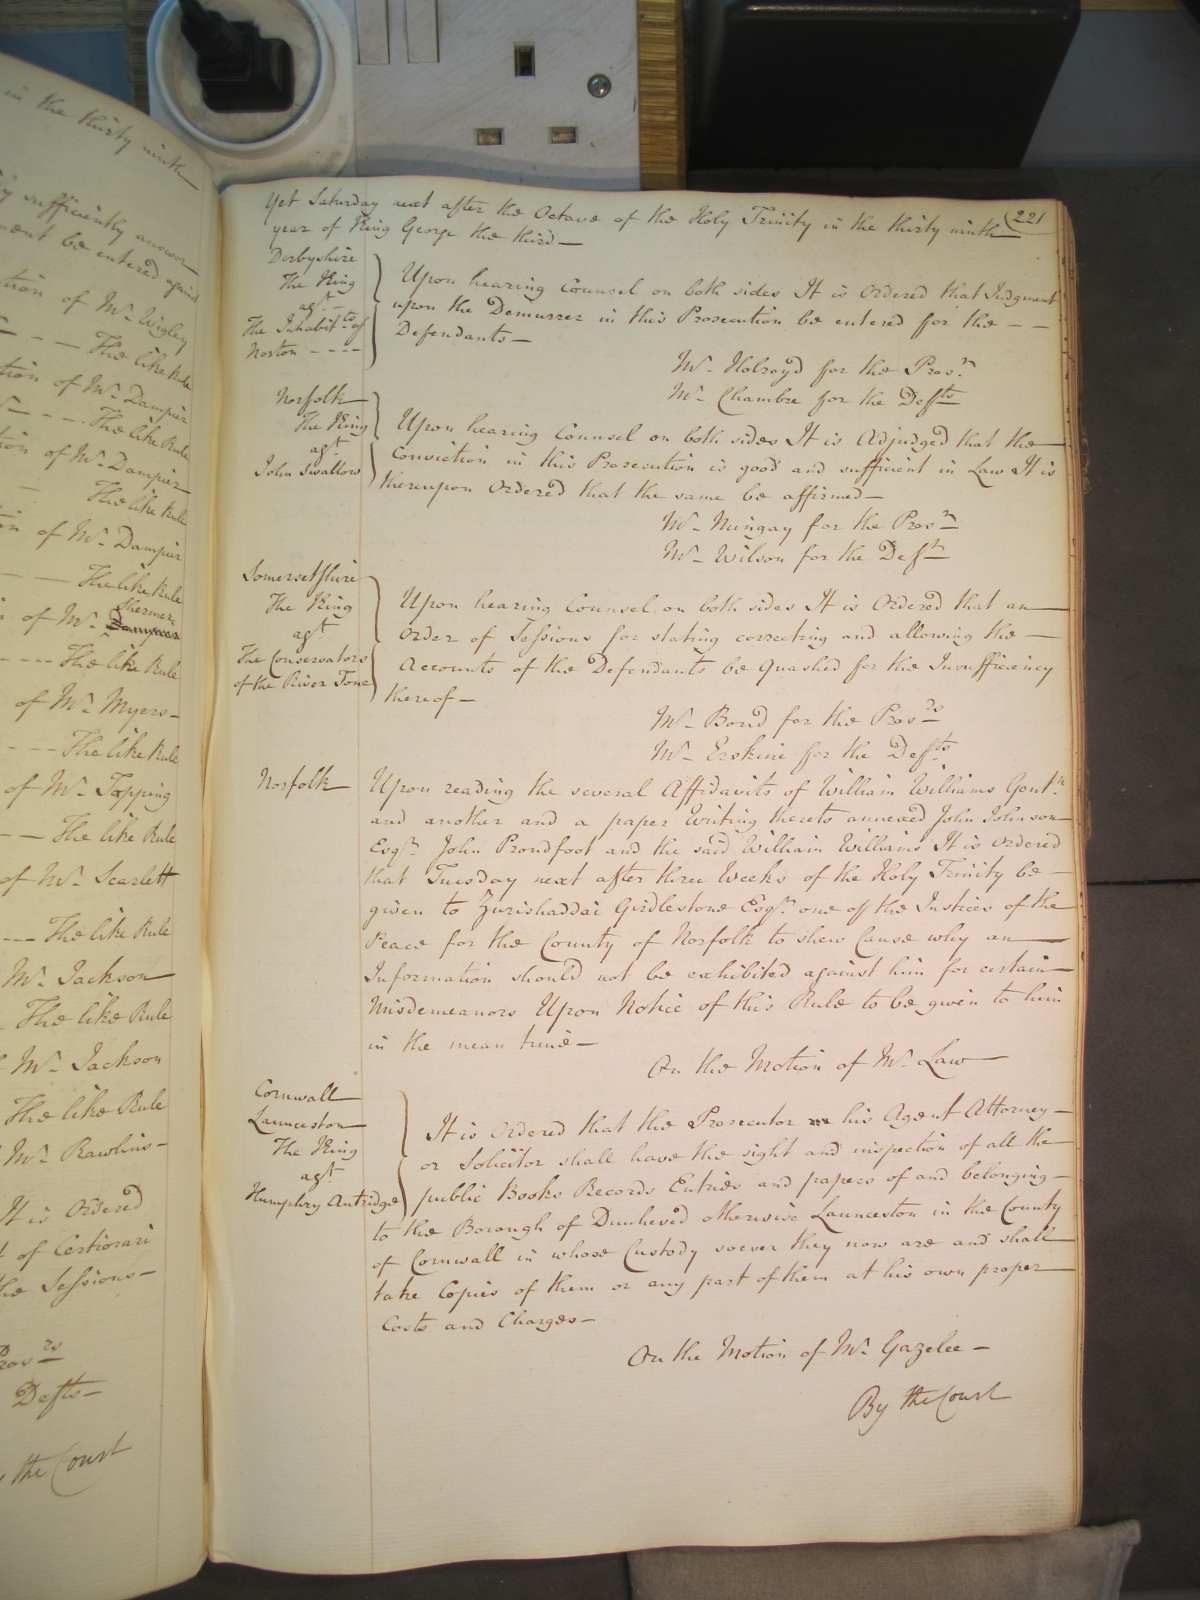 in the thirty ninth
sufficiently answer
ment be entered against
tion of Mr. Wigley
The like Rule
tion of Mr. Dampier
The like Rule
tion of Mr. Dampier
The like Rule
of Mr. Dampier
The like Rule
Shermer
of Mr. Dampier
The like Rule
of Mr. Myers
The like Rule
of Mr. Topping
The like Rule
of Mr. Scarlett
The like Rule
Mr. Jackson
The like Rule
Mr. Jackson
The like Rule
Mr. Rawlins
It is Ordered
of Certiorari
the Sessions
Pros.rs
Defts
the Court
221
Yet Saturday next after the Octave of the Holy Trinity in the thirty ninth
year of King George the third
Derbyshire
The King
agt.
The Inhabit.ts of
Norton
Upon hearing Counsel on both sides It is Ordered that Judgment
upon the Demurrer in this Prosecution be entered for the
Defendants
Mr. Holroyd for the Pros.r
Mr. Chambre for the Defts
Norfolk
The King
agt.
John Swallow
Upon hearing Counsel on both sides It is Adjudged that the
Conviction in this Prosecution is good and sufficient in Law It is
thereupon Ordered that the same be affirmed
Mr. Mingay for the Pros.r
Mr. Wilson for the Deft
Somersetshire
The King
agt.
The Conservators
of the River Tone
Upon hearing Counsel on both sides It is Ordered that an
Order of Sessions for stating correcting and allowing the
Accounts of the Defendants be quashed for the Insufficiency
thereof
Mr. Bond for the Pros.rs
Mr. Erskine for the Defts
Norfolk
Upon reading the several Affidavits of William Williams Gent.n
and another and a paper Writing thereto annexed John Johnson
Esqr. John Proudfoot and the said William Williams It is Ordered
that Tuesday next after three Weeks of the Holy Trinity be
given to Zurishaddai Girdlestone Esqr. one of the Justices of the
Peace for the County of Norfolk to shew Cause why an
Information should not be exhibited against him for certain
Misdemeanors Upon Notice of this Rule to be given to him
in the mean time
On the Motion of Mr. Law
Cornwall
Launceston
The King
agt.
Humphry Antridge
It is Ordered that the Prosecutor his Agent Attorney
or Solicitor shall have the sight and inspection of all the
public Books Records Entries and papers of and belonging
to the Borough of Dunheved otherwise Launceston in the County
of Cornwall in whose Custody soever they now are and shall
take Copies of them or any part of them at his own proper
Costs and Charges
On the Motion of Mr. Gazelee
By the Court